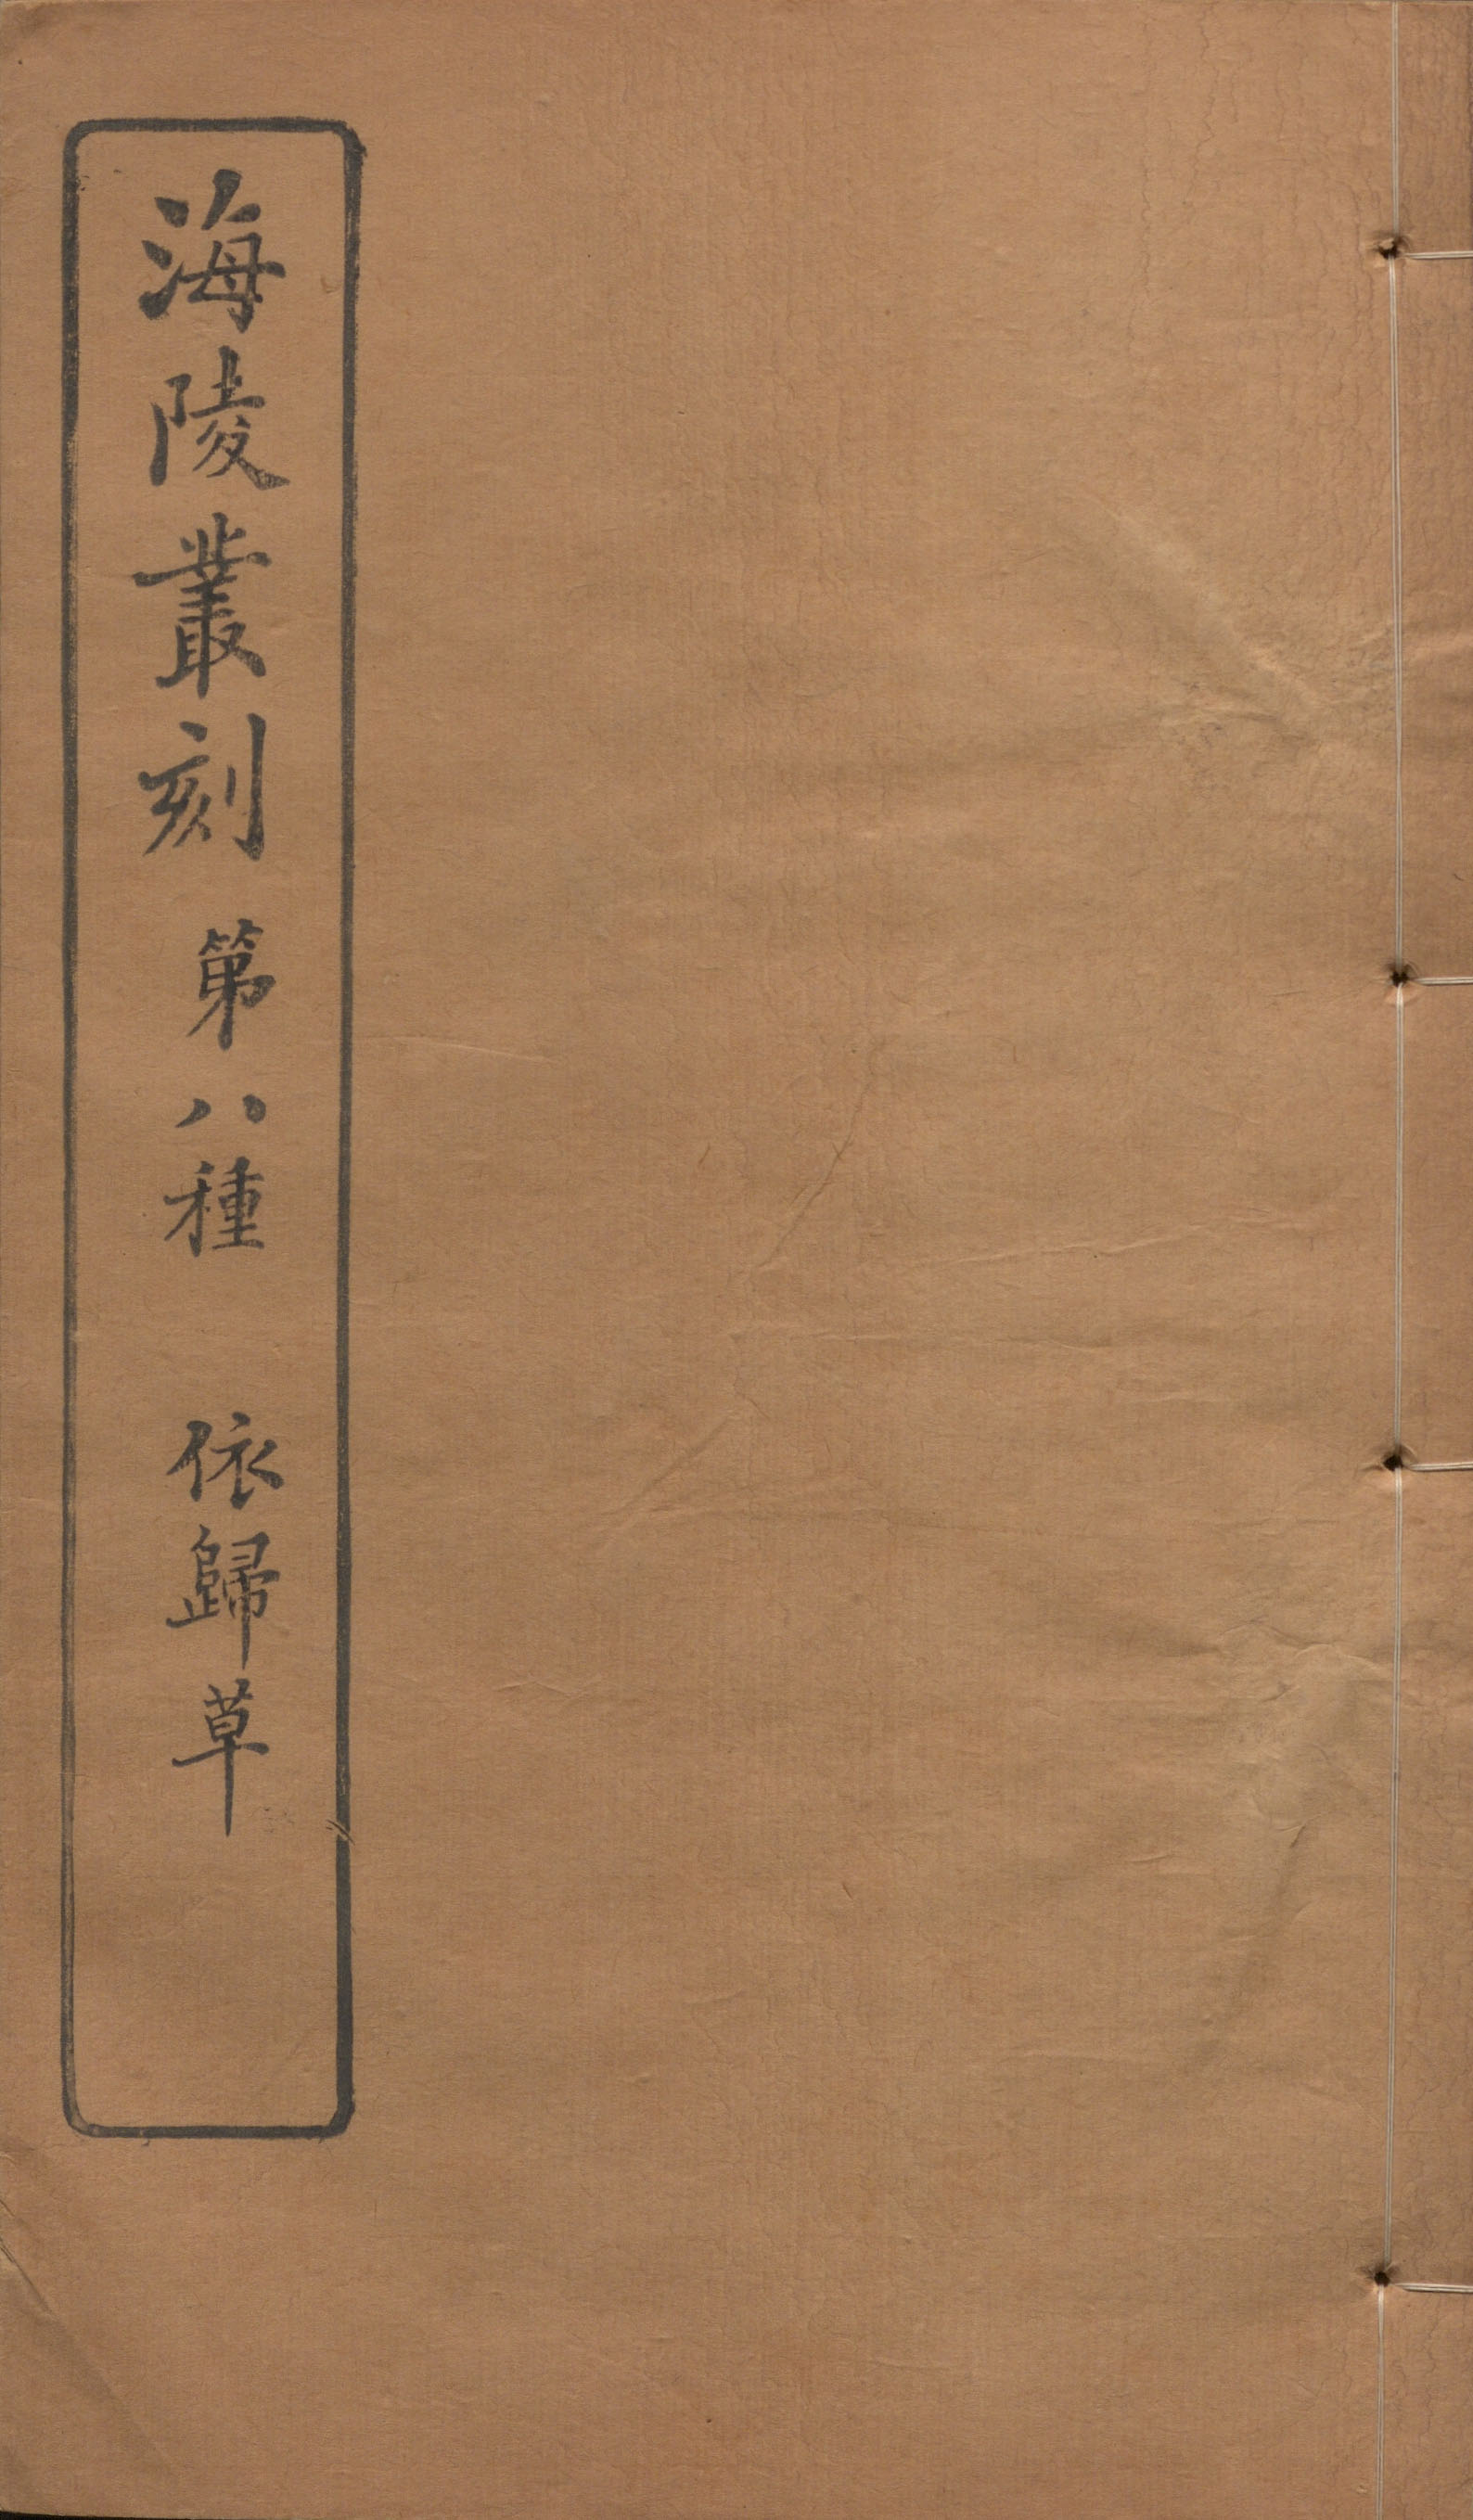 海陵叢刻第八種 依歸草